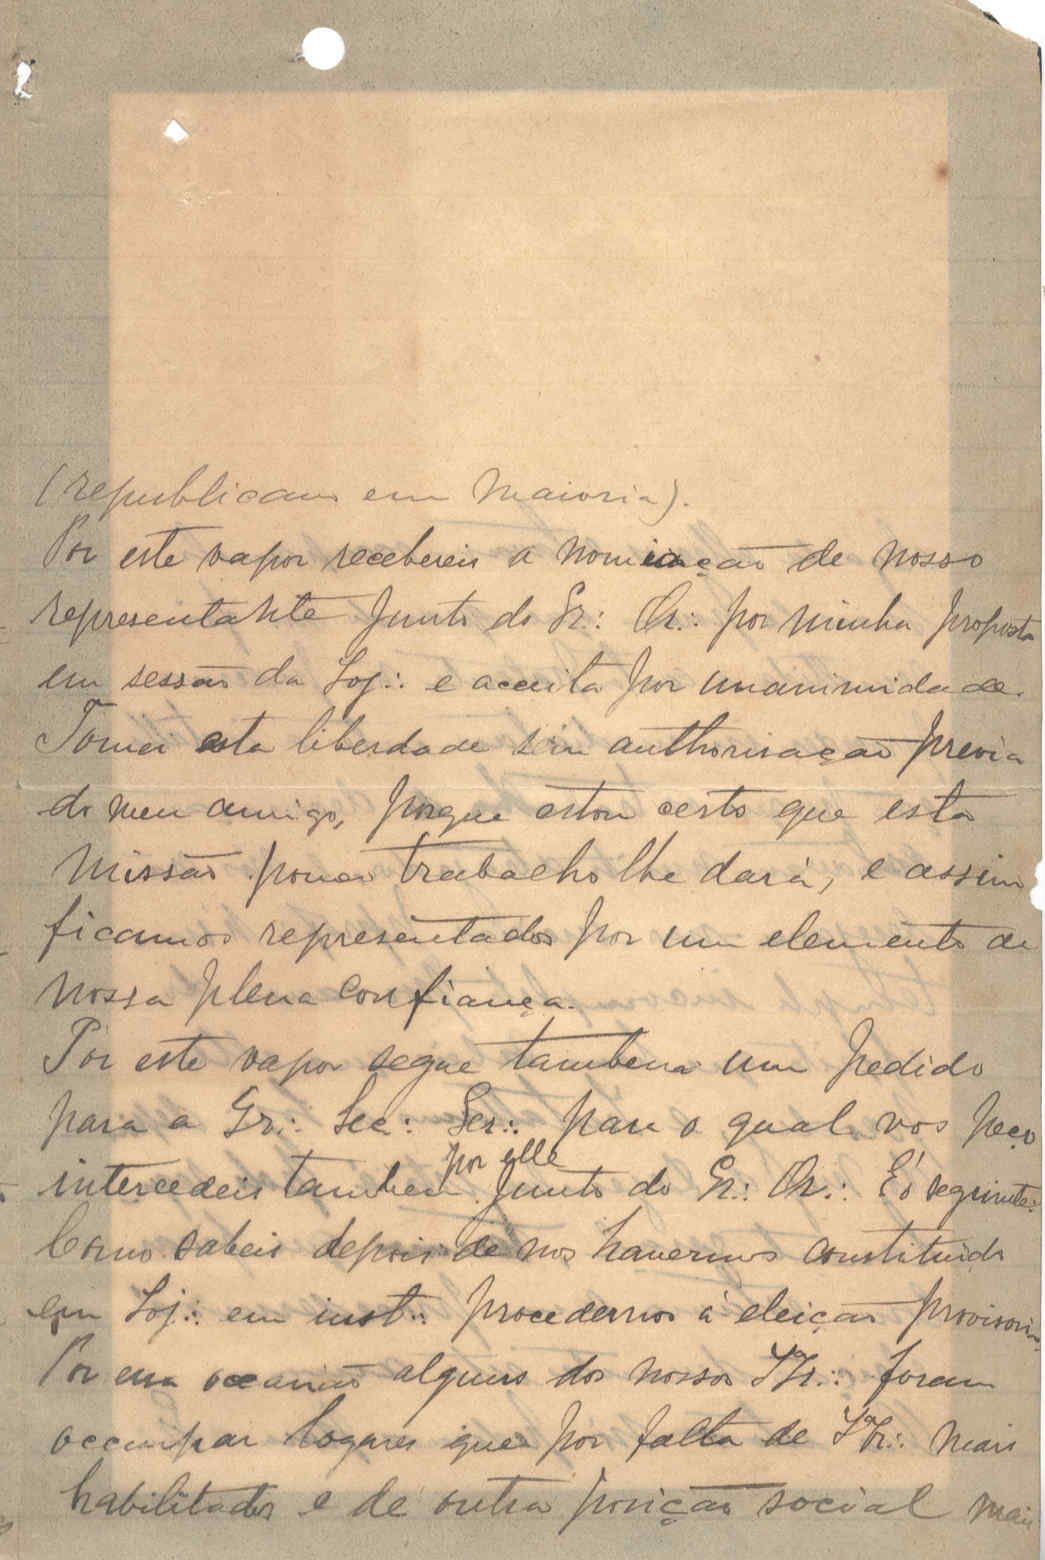 (republicans em maioria).
Por este vapor recebereis a nomiação de nosso
representante junto do Gr∴ Or∴ por minha proposta
em sessão da Loj∴ e acceita por unanimidade.
Tomei esta liberdade sem authorisação previa
do meu amigo, porque estou certo que esta
missão pouco trabalho lhe dará, e assim
ficamos representados por um elemento de
nossa plena confiança.
Por este vapor segue tambem um pedido
para a Gr∴ Sec∴ Ger∴ para o qual vos peço
intercedeis tambem por elle junto do Gr∴ Or∴ É o seguinte:
Como sabeis depois de nos havermos constituido
em Loj∴ em inst∴ procedemos á eleição provisoria.
Por essa occasião alguns dos nossos IIr∴ foram
occupar logares que por falta de IIr∴ mais
habilitados e de outra posição social mais